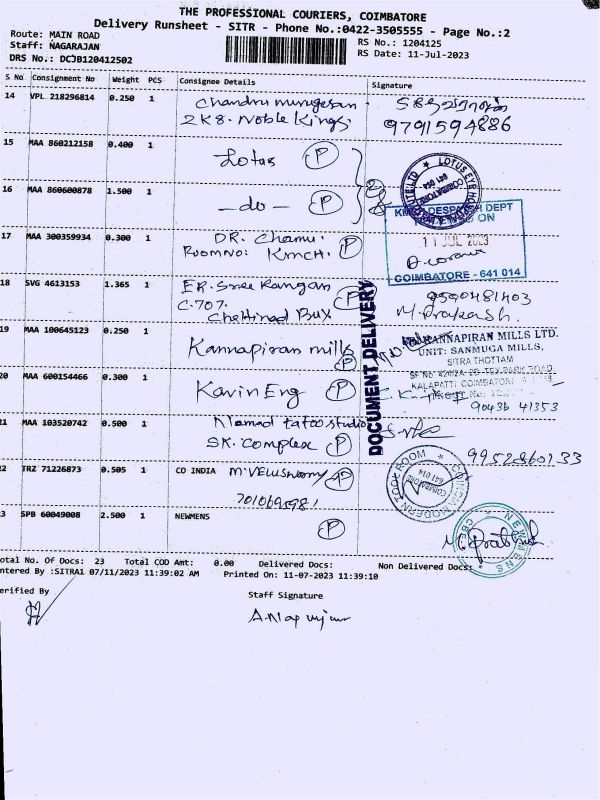 THE PROFESSIONAL COURIERS, COIMBATORE
Delivery Runsheet - SITR - Phone No.:0422-3505555 - Page No.:2
Route: MAIN ROAD
RS No.: 1204125
Staff: NAGARAJAN
RS Date: 11-Jul-2023
DRS No.: DCJB120412502
S No Consignment No Weight PCS Consignee Details Signature
14 VPL 218296814 0.250 1 Chandru murugesan
2K8. Noble Kings.
9791594886
15 MAA 860212158 0.400 1 Lotus P
16 MAA 860600878 1.500 1 - do - P
LOTUS EYE
641 014
COIMBATORE
DESPATCH DEPT
11 JUL 2023
COIMBATORE - 641 014
17 MAA 300359934 0.300 1 DR. Chamu.
ROOM NO: KMCH. P
18 SVG 4613153 1.365 1 ER. Sree Rangan P
C-707.
Chettinad
9590481403
M. Prakash.
DOCUMENT DELIVERY
19 MAA 100645123 0.250 1 Kannapiran mills P
KANNAPIRAN MILLS LTD.
UNIT: SANMUGA MILLS,
SITRA THOTTAM
TEX PARK ROAD,
KALAPATTI COIMBATORE
20 MAA 600154466 0.300 1 Kavin Eng P
90436 41353
21 MAA 103520742 0.500 1 Nomad tatoo studio
SK. Complex P
22 TRZ 71226873 0.505 1 CO INDIA M. Veluswamy P
MODERN TOOL ROOM
641 014
COIMBATORE
23 SPB 60049008 2.500 1 NEWMENS P
NEWMENS
CBE
Total No. Of Docs: 23 Total COD Amt: 0.00 Delivered Docs: Non Delivered Docs:
Entered By :SITRA1 07/11/2023 11:39:02 AM Printed On: 11-07-2023 11:39:10
Verified By
Staff Signature